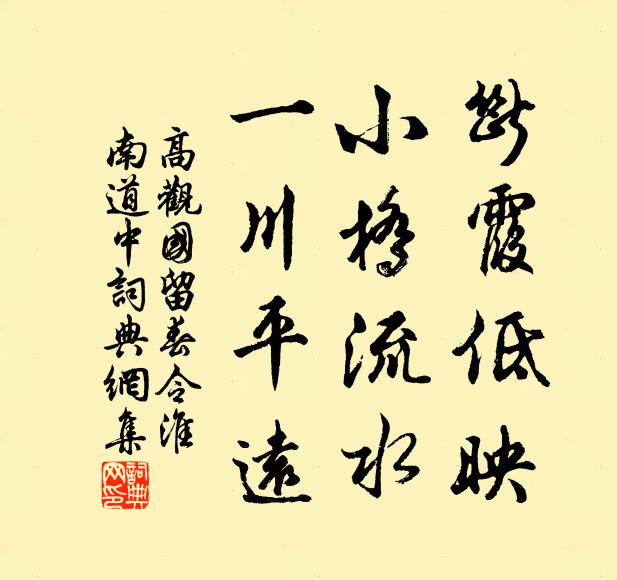 斷霞低映
小橋流水
一川平遠
高觀國留春令淮
南道中詞典網集
詞典網印